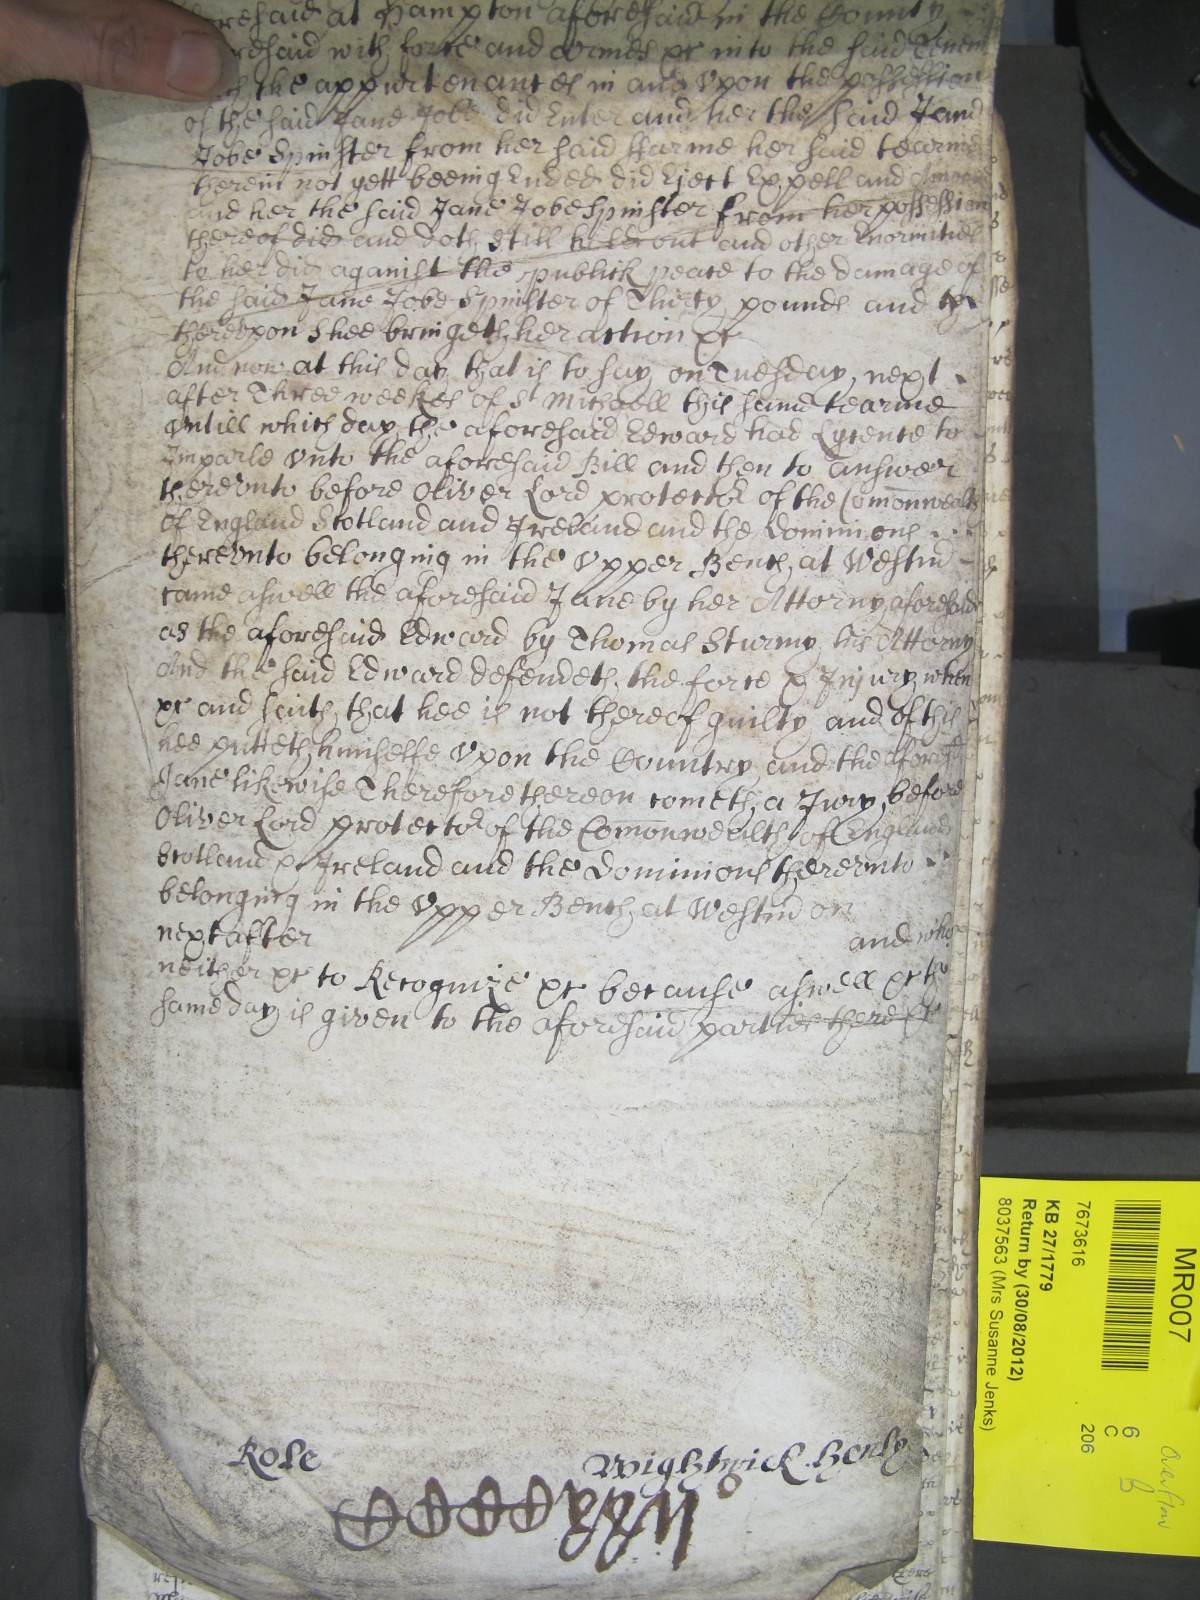 aforesaid at Hampton aforesaid in the County
aforesaid with force and armes &c into the said Tenem
with the appurtenances in and Vpon the possession
of the said Jane Jobe did Enter and her the said Jane
Jobe Spinster from her said ffarme her said tearme
therein not yett beeing Ended did Eject Expell and Amoove
and her the said Jane Jobe Spinster from her possession
thereof did and doth still hold out and other Enormities
to her did against the publick peace to the damage of
the said Jane Jobe Spinster of Thirty pounds and
therevpon shee bringeth her action &c
And now at this day that is to say on Tuesday next
after Three weekes of St Michaell this same tearme
Vntill which day the aforesaid Edward had Lycence to
Imparle Vnto the aforesaid Bill and then to Answer
therevnto before Oliver Lord protector of the Comonwealth
of England Scotland and Ireland and the Dominions
therevnto belonging in the Vpper Bench at Westm
came aswell the aforesaid Jane by her Attorny aforesaid
as the aforesaid Edward by Thomas Sturmy his Attorny
And the said Edward defendeth the force & Injury when
&c and saith that hee is not thereof guilty and of this
hee putteth himselfe Vpon the Country and the aforesd
Jane likewise Therefore thereon cometh a Jury before
Oliver Lord protector of the Comonwealth of England
Scotland & Ireland and the Dominions therevnto
belonging in the Vpper Bench at Westm on
next after and who
neither &c to Recognize &c because aswell &c the
same day is given to the aforesaid parties there &c
Role Wightwick Henly
MR007
7673616
KB 27/1779
Return by (30/08/2012)
8037563 (Mrs Susanne Jenks)
6
C
206
Overflow